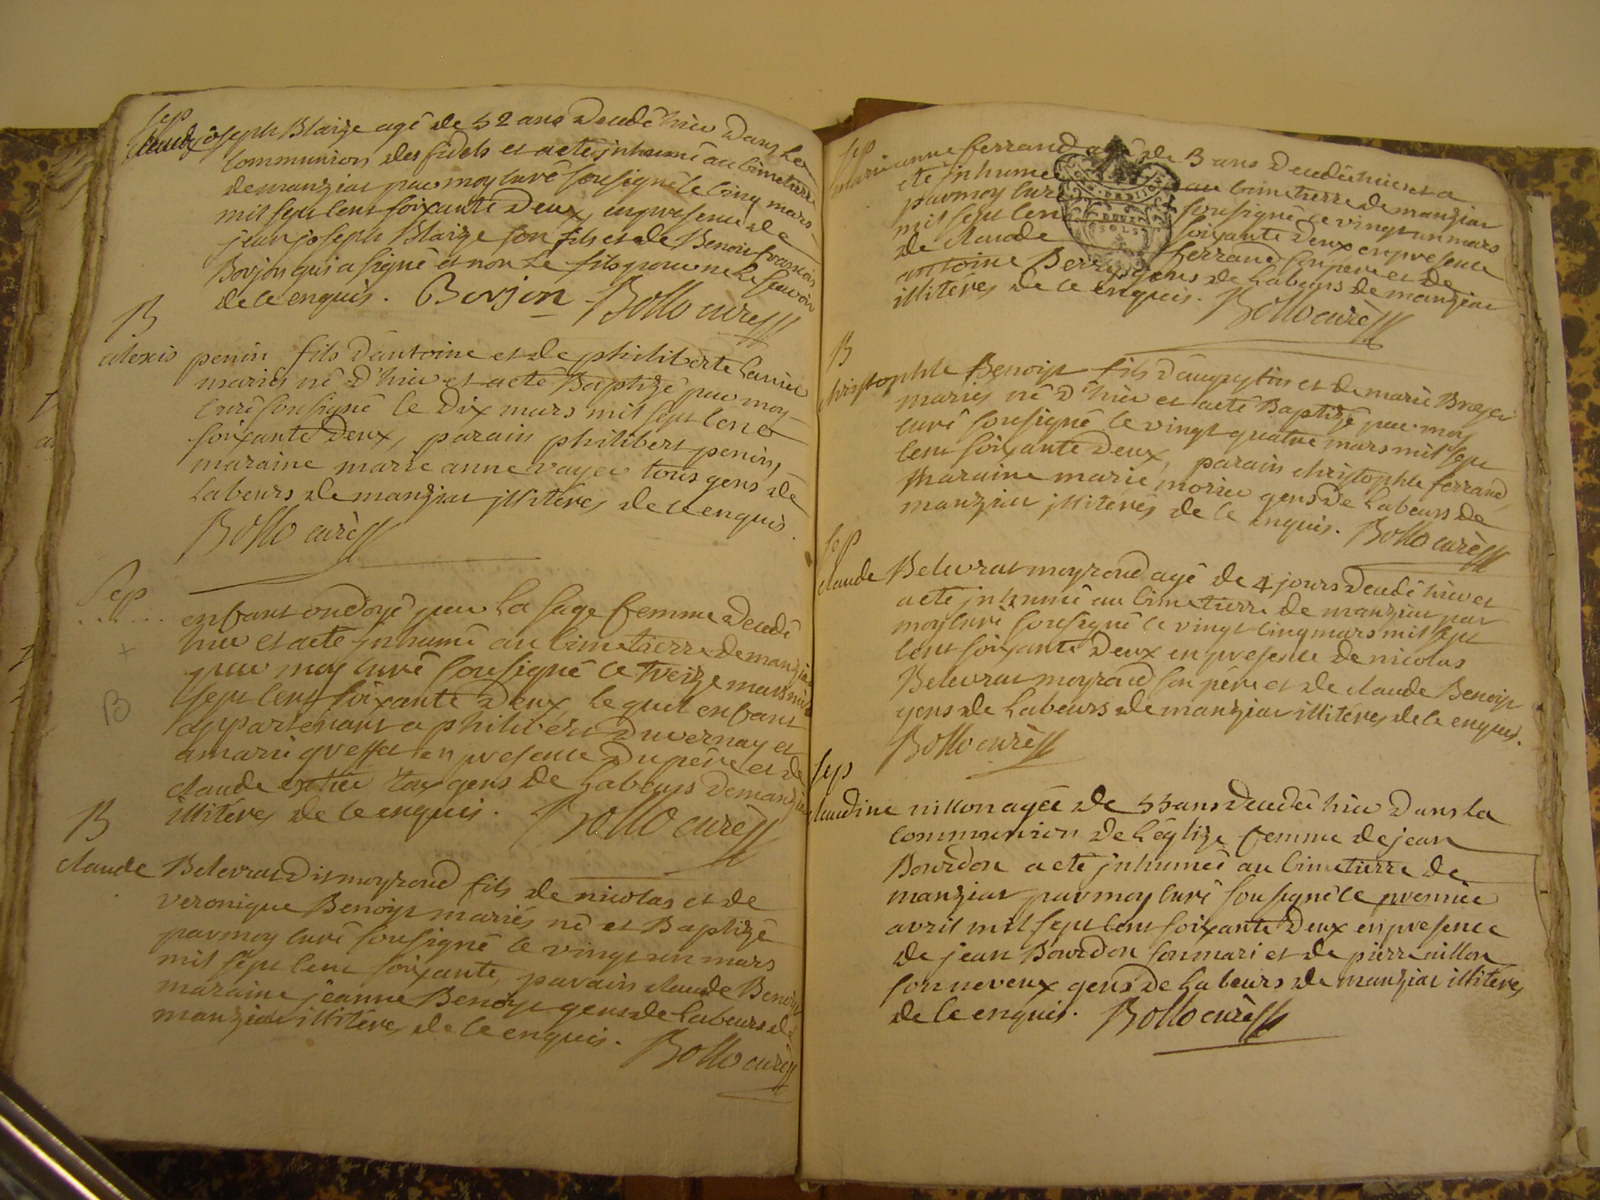 Sep
Claude joseph Blaize agé de 52 ans decedé hier dans la
communion des fidels et a eté inhumé au cimetierre
de manziat par moy curé sousigné le cinq mars
mil sept cent soixante deux, en presence de
jean joseph Blaize son fils et de Benoit francois
Borjon qui a signé et non le fils pour ne le scavoir
de ce enquis. Borjon Bollo curé
B
alexis penin fils d'antoine et de philiberte
mariés né d'hier et a eté Baptizé par moy
curé sousigné le dix mars mil sept cent
soixante deux, parain philibert penin,
maraine marie anne voyer tous gens de
labeurs de manziat illiterés de ce enquis.
Bollo curé
Sep
enfant ondoyé par la sage femme decedé
hier et a eté inhumé au cimetierre de manziat
par moy curé sousigné le treize mars mil
sept cent soixante deux, lequel enfant
appartenant a philibert Duvernay et
a marie en presence du pere et de
claude gens de labeurs de manziat
illiterés de ce enquis. Bollo curé
B
B
claude Belevrat dit moyroud fils de nicolas et de
veronique Benoist mariés né et Baptizé
par moy curé sousigné le vingt un mars
mil sept cent soixante, parain claude Benoist
maraine jeanne Benoist gens de labeurs de
manziat illiterés de ce enquis. Bollo curé
Sep
marie anne ferrand agé de 3 ans decedé hier et a
eté inhumé au cimetierre de manziat
par moy curé sousigné le vingt un mars
mil sept cent soixante deux en presence
de claude ferrand son pere et de
antoine Berry gens de labeurs de manziat
illiterés de ce enquis. Bollo curé
B
christophle Benoist fils d'augustin et de marie Broyer
mariés né d'hier et a eté Baptizé par moy
curé sousigné le vingt quatre mars mil sept
cent soixante deux, parain christophle ferrand,
maraine marie morier gens de labeurs de
manziat illiterés de ce enquis. Bollo curé
Sep
claude Belevrat moyroud agé de 4 jours decedé hier et
a eté inhumé au cimetierre de manziat par
moy curé sousigné le vingt cinq mars mil sept
cent soixante deux en presence de nicolas
Belevrat moyroud son pere et de claude Benoist
gens de labeurs de manziat illiterés de ce enquis.
Bollo curé
Sep
claudine nillon agée de 55 ans decedée hier dans la
communion de l'églize femme de jean
Bourdon a eté inhumée au cimetierre de
manziat par moy curé sousigné le premier
avril mil sept cent soixante deux en presence
de jean Bourdon son mari et de pierre nillon
son neveux gens de labeurs de manziat illiterés
de ce enquis. Bollo curé